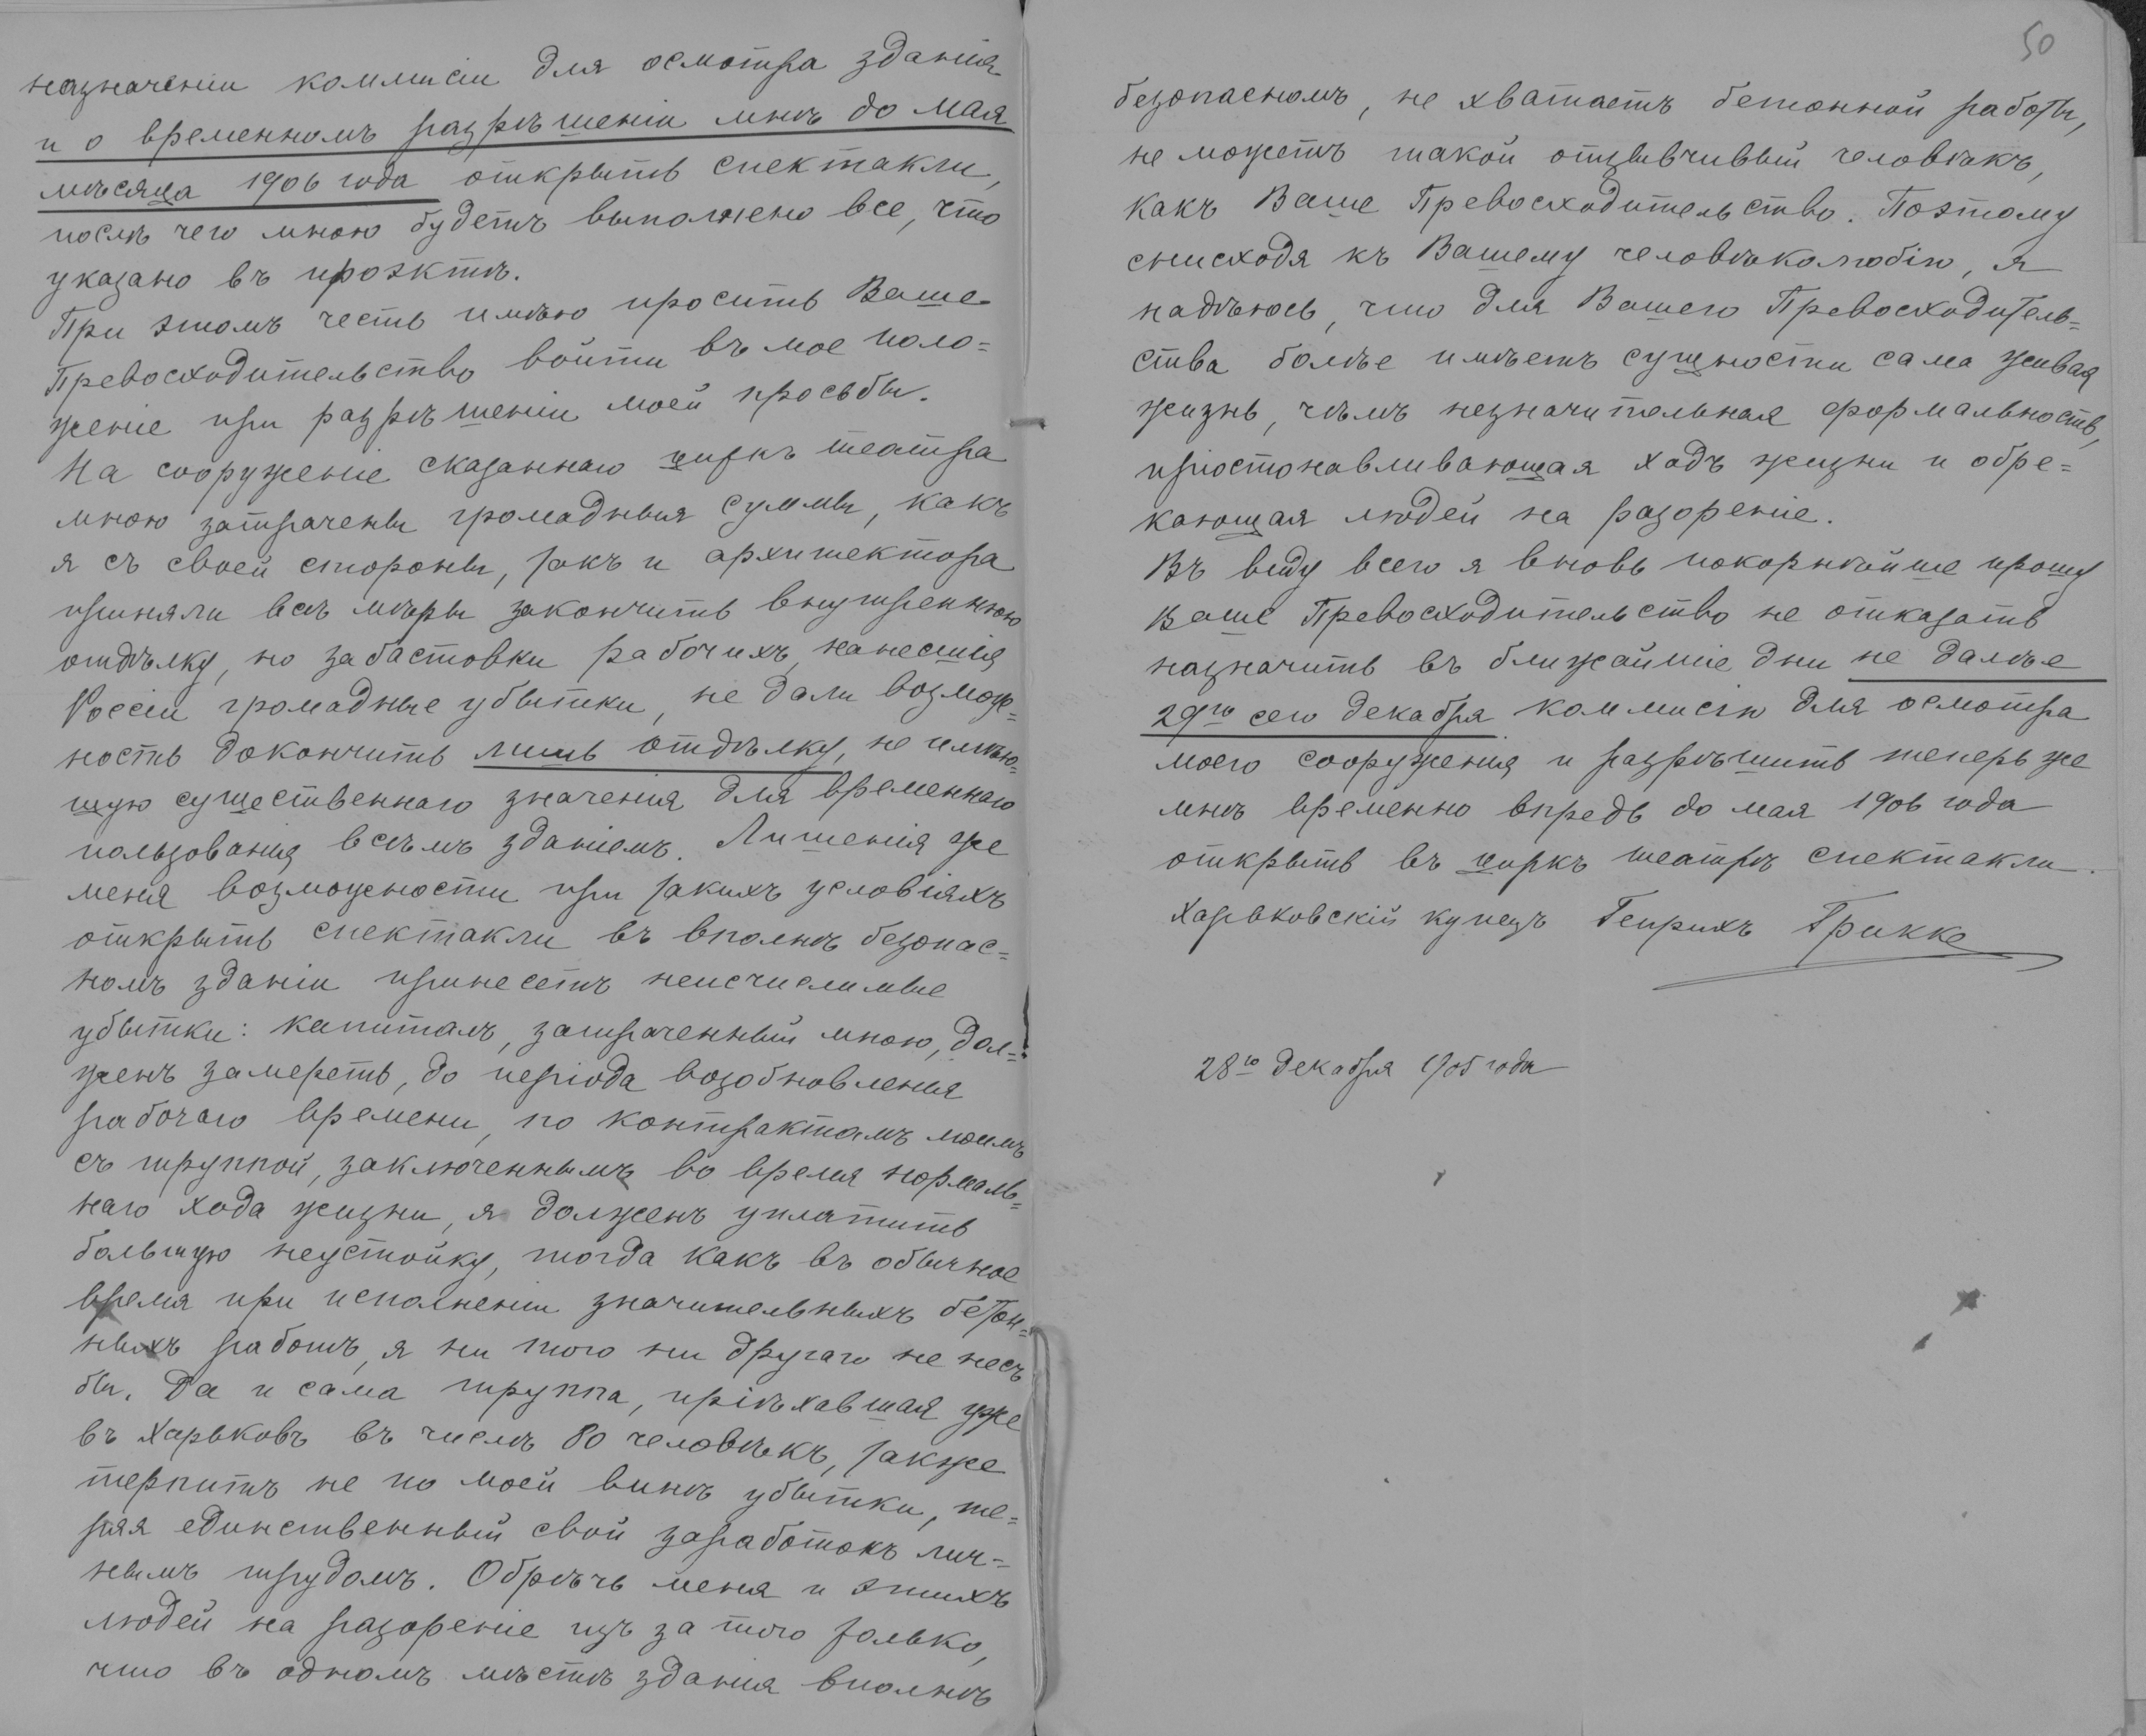 назначеніи коммисіи для осмотра зданія
и о временномъ разрѣшеніи мнѣ до мая
мѣсяца 1906 года открыть спектакли,
послѣ чего мною будетъ выполнено все, что
указано въ проэктѣ.
При этомъ честь имѣю просить Ваше
Превосходительство войти въ мое поло=
женіе при разрѣшеніи моей просьбы.
На сооруженіе сказаннаго циркъ театра
мною затрачены громадныя суммы, какъ
я съ своей стороны, такъ и архитектора
приняли всѣ мѣры закончить внутреннюю
отдѣлку, но забастовки рабочихъ, нанесшія
Россіи громадные убытки, не дали возмож=
ность докончить лишь отдѣлку, не имѣю=
щую существеннаго значенія для временнаго
пользованія всѣмъ зданіемъ. Лишенія же
меня возможности при такихъ условіяхъ
открыть спектакли въ вполнѣ безопас=
номъ зданіи принесетъ неисчислимые
убытки: капиталъ, затраченный мною, дол=
женъ замереть, до періода возобновленія
рабочаго времени, по контрактамъ моимъ
съ труппой, заключеннымъ во время нормаль=
наго хода жизни, я долженъ уплатить
большую неустойку, тогда какъ въ обычное
время при исполненіи значительныхъ бетон=
ныхъ работъ, я ни того ни другаго не несъ
бы. Да и сама труппа, пріѣхавшая уже
въ Харьковъ въ числѣ 80 человѣкъ, также
терпитъ не по моей винѣ убытки, те=
ряя единственный свой заработокъ лич=
нымъ трудомъ. Обрѣчь меня и этихъ
людей на разореніе изъ за того только,
что въ одномъ мѣстѣ зданія вполнѣ
50
безопасномъ, не хватаетъ бетонной работы,
не можетъ такой отзывчивый человѣкъ,
какъ Ваше Превосходительство. Поэтому
снисходя къ Вашему человѣколюбію, я
надѣюсь, что для Вашего Превосходитель=
ства болѣе имѣетъ сущности сама живая
жизнь, чѣмъ незначительная формальность,
пріостонавливающая ходъ жизни и обре=
кающая людей на разореніе.
Въ виду всего я вновь покорнѣйше прошу
Ваше Превосходительство не отказать
назначить въ ближайшіе дни не далѣе
29го сего декабря коммисію для осмотра
моего сооруженія и разрѣшить теперь же
мнѣ временно впредь до мая 1906 года
открыть въ циркъ театрѣ спектакли.
Харьковскій купецъ Генрихъ Грикке
28го декабря 1905 года